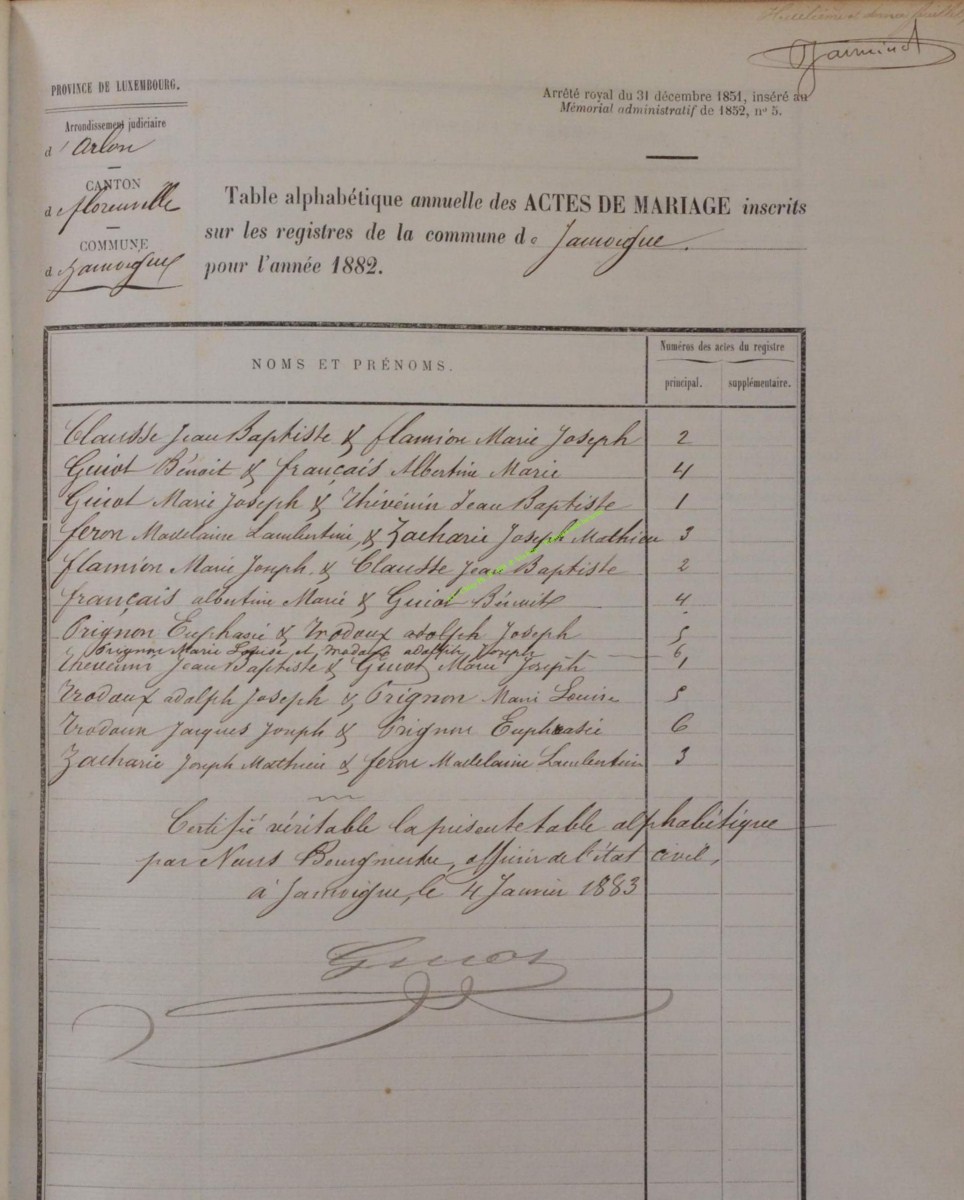 Huitième et dernier feuillet,
PROVINCE DE LUXEMBOURG.
Arrêté royal du 31 décembre 1851, inséré au
Mémorial administratif de 1852, nº 5.
Arrondissement judiciaire
d'Arlon
CANTON
d Florenville
COMMUNE
d Jamoigne
Table alphabétique annuelle des ACTES DE MARIAGE inscrits
sur les registres de la commune de Jamoigne.
pour l'année 1882.
NOMS ET PRÉNOMS.
Numéros des actes du registre
principal. supplémentaire.
Clausse Jean Baptiste & flamion Marie Joseph 2
Guiot Bénoit & français Albertine Marie 4
Guiot Marie Joseph & Thévénin Jean Baptiste 1
feron Madelaine Lambertine, & Zacharie Joseph Mathieu 3
flamion Marie Joseph & Clausse Jean Baptiste 2
français albertine Marie & Guiot Bénoit 4
Prignon Euphasie & Trodoux adolph Joseph 5
Prignon Marie Louise et Trodoux adolph Joseph 6
thévénin Jean Baptiste & Guiot Marie Joseph 1
Trodoux adolph Joseph & Prignon Marie Louise 5
Trodoux Jacques Joseph & Prignon Euphrasie 6
Zacharie Joseph Mathieu & feron Madelaine Lambertine 3
Certifié véritable la présente table alphabétique
par Nous Bourgmestre, officier de l'état civil,
à Jamoigne, le 4 Janvier 1883
Guiot